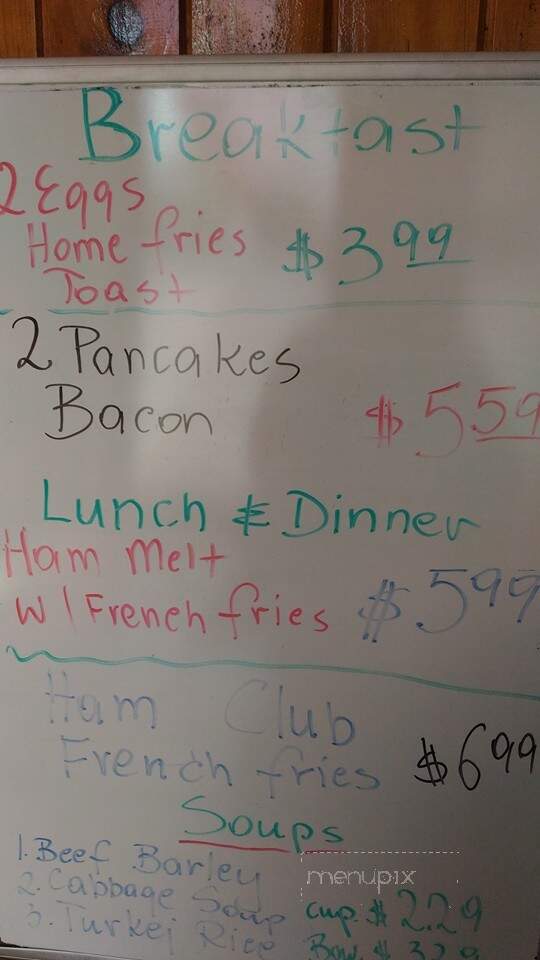 Breakfast
2 Eggs
Home fries $3.99
Toast
2 Pancakes
Bacon $5.59
Lunch & Dinner
Ham Melt
W/ French fries $5.99
Ham Club
French fries $6.99
Soups
1. Beef Barley
2. Cabbage Soup cup. $2.29
3. Turkej Rice Bow. $3.29
menupix